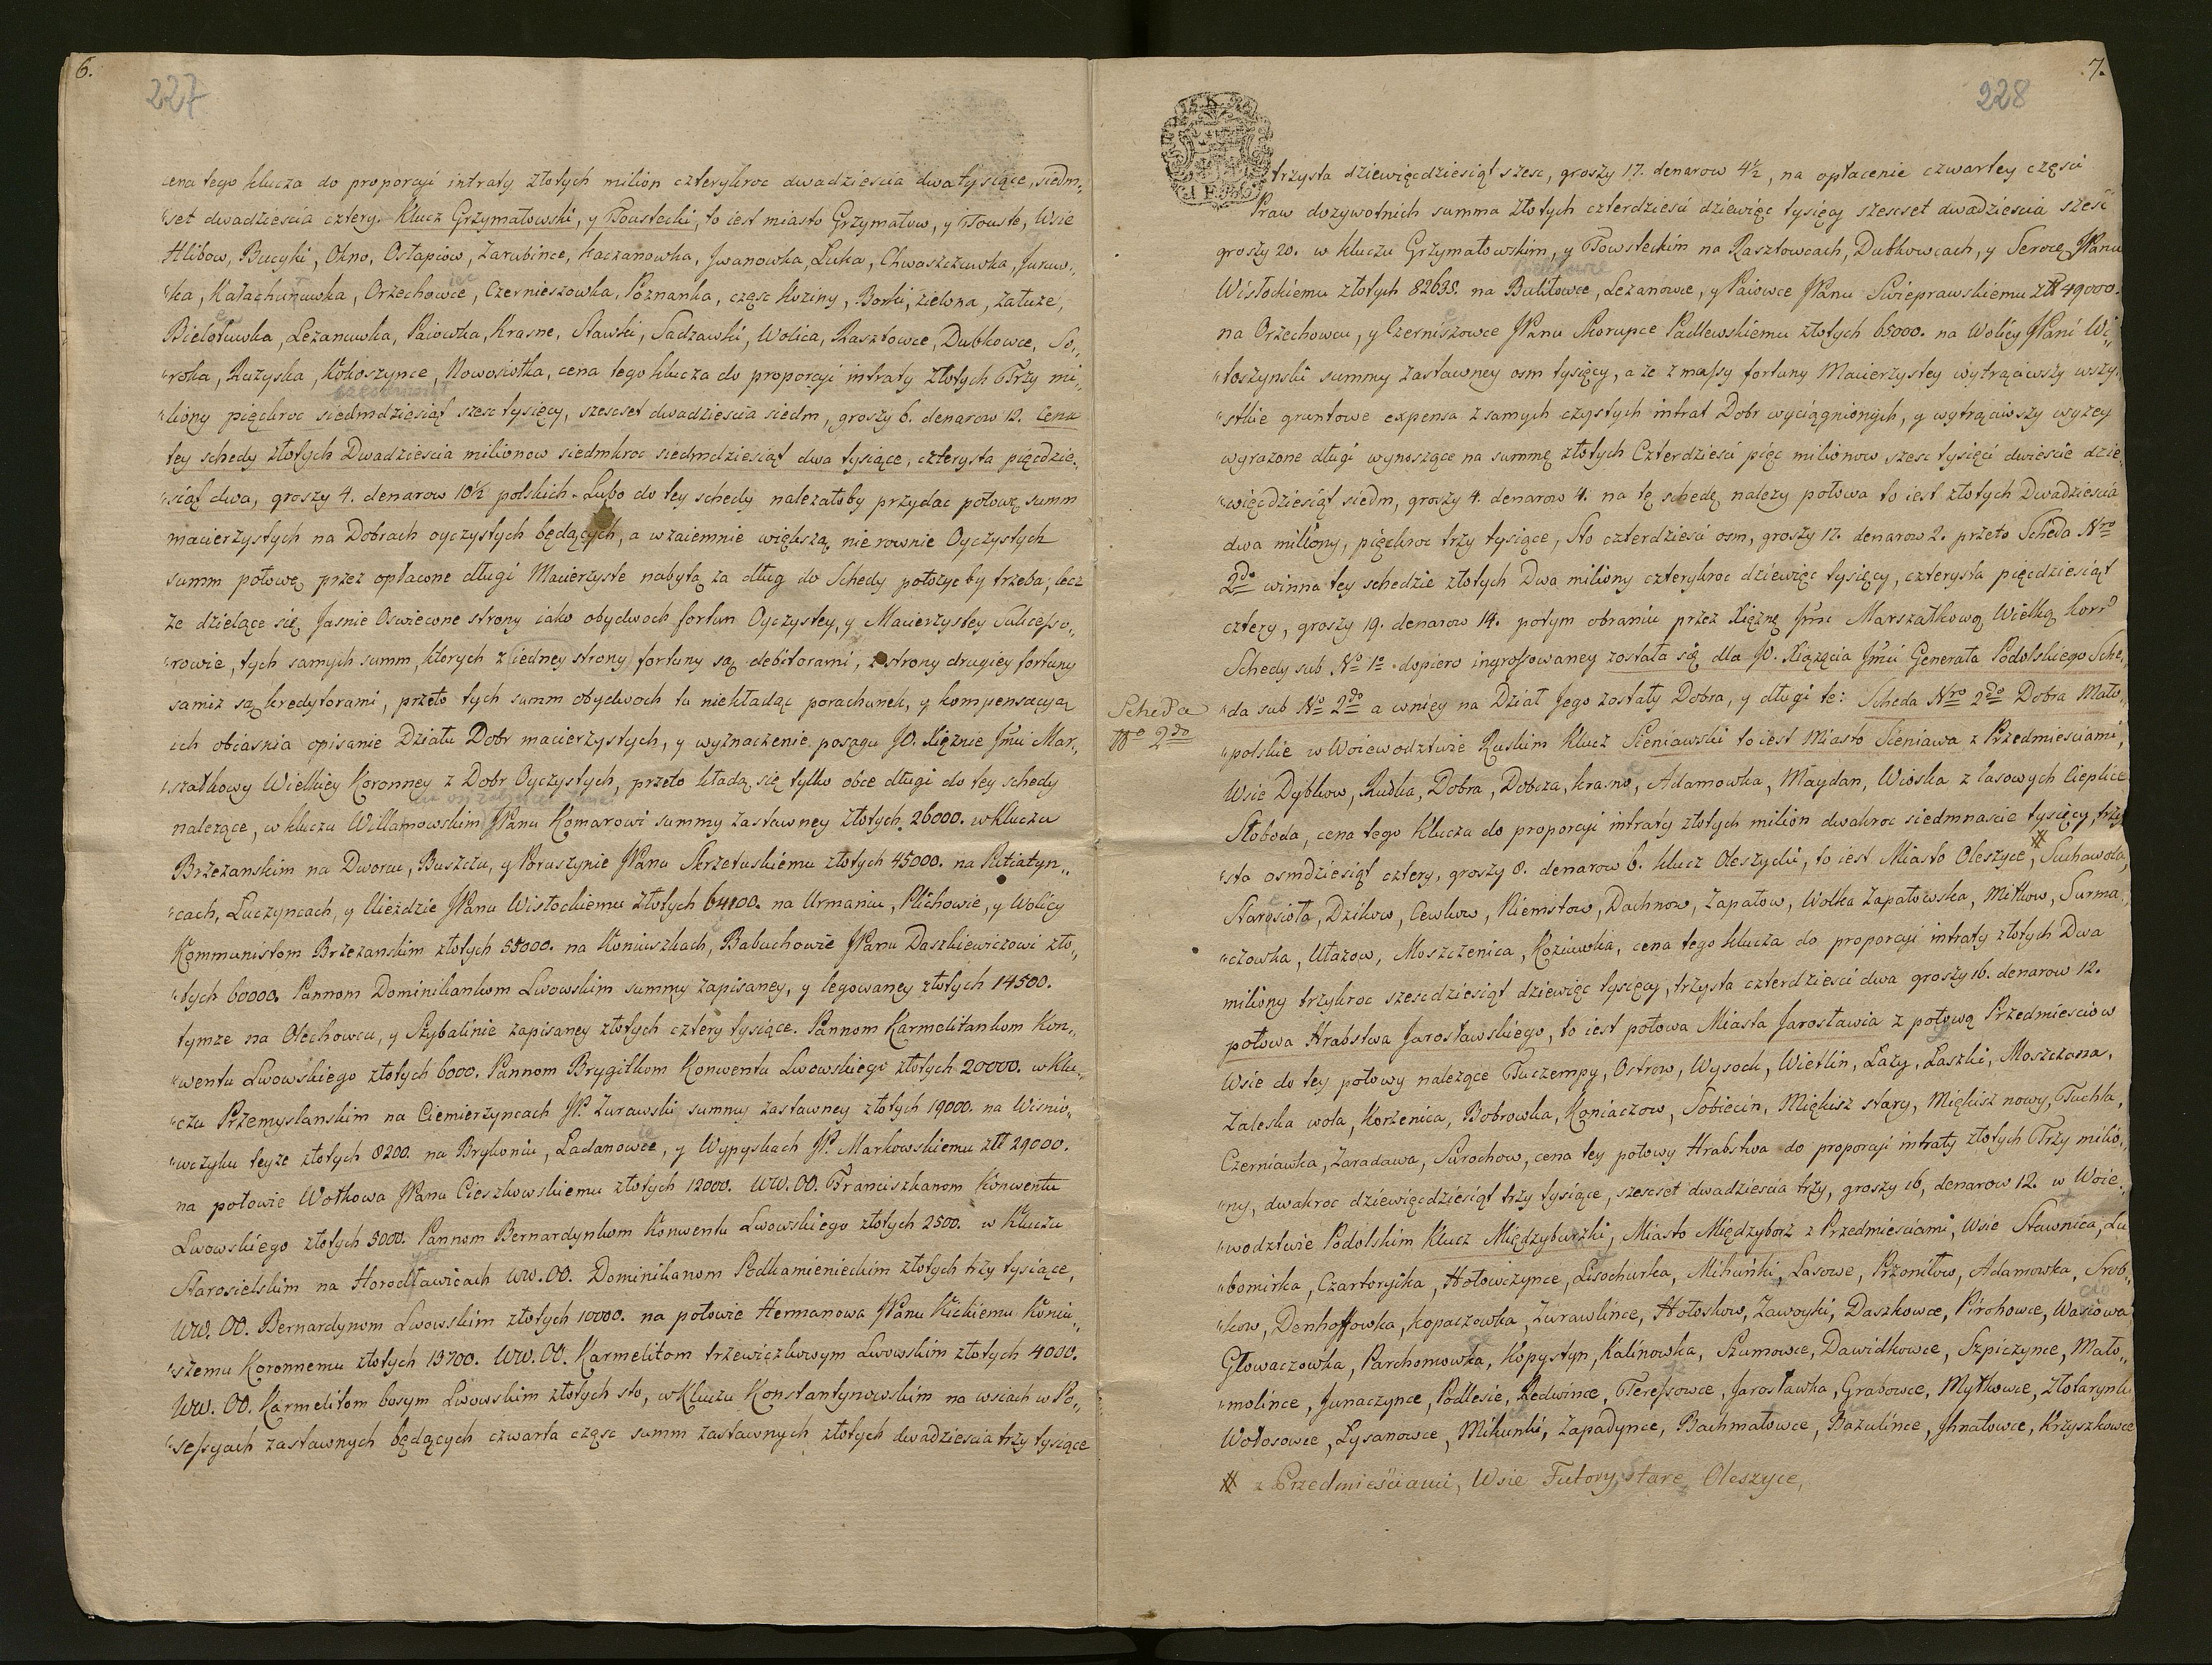 6.
227
cena tego klucza do proporcyi intraty złotych milion czterykroc dwadziescia dwa tysiące, siedm,,
"set dwadziescia cztery. Klucz Grzymałowski, y Toustecki, to iest miasto Grzymałow, y Touste, Wsie
Hlibow, Bucyki, Okno, Ostapiow, Zarubince, Kaczanowka, Jwanowka, Luka, Chwaszczuwka, Juruw,,
"ka, Kałacharuwka, Orzechowce, Czernieszowka, Poznanka, częsc Koziny, Borki, zielona, Załuze,
Bielotuwka, Lezanuwka, Paiowka, Krasne, Stawki, Sadzawki, Wolica, Rasztowce, Dubkowce, So,,
"roka, Kuzyska, Kokoszynce, Nowosiołka, cena tego klucza do proporcyi intraty złotych Trzy mi,,
"liony pięckroc siedmdzięsiąt szesc tysięcy, szescset dwadzięscia siedm, groszy 6. denarow 12. Cena
tey schedy złotych Dwadziescia milionow siedmkroc siedmdziesiąt dwa tysiące, czterysta pięcdzie,,
"siąt dwa, groszy 4. denarow 10½ polskich. Lubo do tey schedy nalezałoby przydac połowę summ
macierzystych na Dobrach oyczystych będących, a wzaiemnie większą nierownie Oyczystych
summ połowę przez opłacone długi Macierzyste nabytą za dług do Schedy połozyc by trzeba; lecz
ze dzielące się Jasnie Oswiecone strony iako obydwoch fortun Oyczystey, y Macierzystey Sukcesso,,
"rowie, tych samych summ, ktorych z iedney strony fortuny są debitorami, z strony drugiey fortuny
samiz są kredytorami, przeto tych summ obydwoch tu niekładąc porachunek, y kompensacyą
ich obiasnia opisanie Działu Dobr macierzystych, y wyznaczenie posagu JO. Xięznie Jmci Mar,,
"szałkowy Wielkiey Koronney z Dobr Oyczystych, przeto kładą się tylko obce długi do tey schedy
nalezące, w kluczu Willamowskim JPanu Komarowi summy zastawney złotych 26000. w kluczu
Brzezanskim na Dworcu, Buszczu, y Poruszynie JPanu Skrzetuskiemu złotych 45000. na Rutiatyn,,
"cach, Luczyncach, y Uieździe JPanu Wisłockiemu złotych 64100. na Urmaniu, Plichowie, y Wolicy
Kommunistom Brzezanskim złotych 55000. na Koniuszkach, Babuchowie JPanu Daszkiewiczowi zło,,
"tych 60000. Pannom Dominikankom Lwowskim summy zapisaney, y legowaney złotych 14500.
tymze na Olechowcu, y Szybalinie zapisaney złotych cztery tysiące. Pannom Karmelitankom Kon,,
"wentu Lwowskiego złotych 6000. Pannom Brygitkom Konwentu Lwowskiego złotych 20000. w Klu,,
"czu Przemyslanskim na Ciemierzyncach JP. Zurawski summy zastawney złotych 19000. na Wisnio,,
"wczyku teyze złotych 8200. na Brykoniu, Ladanowce, y Wypyskach JP. Markowskiemu złł 29000.
na połowie Wołkowa JPanu Cieszkowskiemu złotych 12000. WW. OO. Franciszkanom Konwentu
Lwowskiego złotych 5000. Pannom Bernardynkom Konwentu Lwowskiego złotych 2500. w Kluczu
Starosielskim na Horodławicach WW. OO. Dominikanom Podkamienieckim złotych trzy tysiące,
WW. OO. Bernardynom Lwowskim złotych 10000. na połowie Hermanowa JPanu Kickiemu Koniu,,
"szemu Koronnemu złotych 13700. WW. OO. Karmelitom trzewiczkowym Lwowskim złotych 4000.
WW. OO. Karmelitom bosym Lwowskim złotych sto, w Kluczu Konstantynowskim na wsiach w Po,,
"sessyach zastawnych będących czwarta częsc summ zastawnych złotych dwadziescia trzy tysiące
7.
228
trzysta dziewięcdziesiąt szesc, groszy 17. denarow 4½, na opłacenie czwartey częsci
Praw dozywotnich summa złotych czterdziesci dziewięc tysięcy szescset dwadziescia szesc
groszy 20. w kluczu Grzymałowskim, y Towsteckim na Rasztowcach, Dubkowcach, y Seroce JPanu
Wisłockiemu złotych 82638. na Bulitowce, Lezanowce, y Paiowce JPanu Swieprawskiemu złł 49000.
na Orzechowcu, y Czerniszowce JPanu Skorupce Padlewskiemu złotych 65000. na Wolicy JPani Wi,,
"łoszynski summy zastawney osm tysięcy, a ze z massy fortuny Macierzystey wytrąciwszy wszy,,
"stkie gruntowe expensa z samych czystych intrat Dobr wyciągnionych, y wytrąciwszy wyzey
wyrazone długi wynoszące na summę złotych Czterdziesci pięc milionow szesc tysięci dwiescie dzie,,
"więcdziesiąt siedm, groszy 4. denarow 4. na tę schedę nalezy połowa to iest złotych Dwadziescia
dwa miliony, pięckroc trzy tysiące, Sto czterdziesci osm, groszy 17. denarow 2. przeto Scheda Nro
2do winna tey schedzie złotych Dwa miliony czterykroc dziewięc tysięcy, czterysta pięcdziesiąt
cztery, groszy 19. denarow 14. potym obraniu przez Xięznę Jmc Marszałkową Wielką Korr
Schedy sub No 1o dopiero ingrossowaney została się dla JO. Xiązęcia Jmci Generała Podolskiego Sche,,
Scheda
No 2do
"da sub No 2do a wniey na Dział Jego zostały Dobra, y długi te: Scheda Nro 2do Dobra Mało,,
"polskie w Woiewodztwie Ruskim Klucz Sieniawski to iest Miasto Sieniawa z Przedmiesciami,
Wsie Dybkow, Rudka, Dobra, Dobcza, Krasne, Adamowka, Maydan, Wioska z lasowych Cieplice
Słoboda, cena tego Klucza do proporcyi intraty złotych milion dwakroc siedmnascie tysięcy, trzy
"sta osmdziesiąt cztery, groszy 8. denarow 6. Klucz Oleszycki, to iest Miasto Oleszyce, # Suchawola,
Starosioła, Dzikow, Cewkow, Niemstow, Dachnow, Zapałow, Wolka Zapałowska, Mitkow, Surma,,
"czowka, Ułazow, Moszczenica, Koziuwka, cena tego klucza do proporcyi intraty złotych Dwa
miliony trzykroc szescdziesiąt dziewięc tysięcy, trzysta czterdziesci dwa groszy 16. denarow 12.
połowa Hrabstwa Jarosławskiego, to iest połowa Miasta Jarosławia z połową Przedmiesciow
Wsie do tey połowy nalezące Tuczempy, Ostrow, Wysock, Wietlin, Łazy, Laszki, Moszczana,
Zaleska wola, Korzenica, Bobrowka, Koniaczow, Sobiecin, Miękisz stary, Miękisz nowy, Tuchla,
Czerniawka, Zaradawa, Surochow, cena tey połowy Hrabstwa do proporcyi intraty złotych Trzy milio,,
"ny, dwakroc dziewięcdziesiąt trzy tysiące, szescset dwadziescia trzy, groszy 16, denarow 12. w Woie,,
"wodztwie Podolskim Klucz Międzyburzki, Miasto Międzyborz z Przedmiesciami, Wsie Stawnica, Lu
"bomirka, Czartoryika, Hołowczynce, Lisochurka, Mikuńki, Lasowe, Przonitow, Adamowka, Srob,,
"kow, Denhoffowka, Kopaczowka, Zurawlince, Hołoskow, Zawoyki, Daszkowce, Pirohowce, Wasiowa
Głowaczowka, Parchomowka, Kopystyn, Kalinowka, Szumowce, Dawidkowce, Szpiczynce, Mało,,
"molince, Junaczynce, Podlesie, Redwince, Teressowce, Jarosławka, Grabowce, Mytkowce, Złotarynki
Wołosowce, Lysanowce, Mikunki, Zapadynce, Bachmatowce, Bazulince, Jhnatowce, Krzyszkowce
# z Przedmieściami, Wsie Futory, Stare Oleszyce,